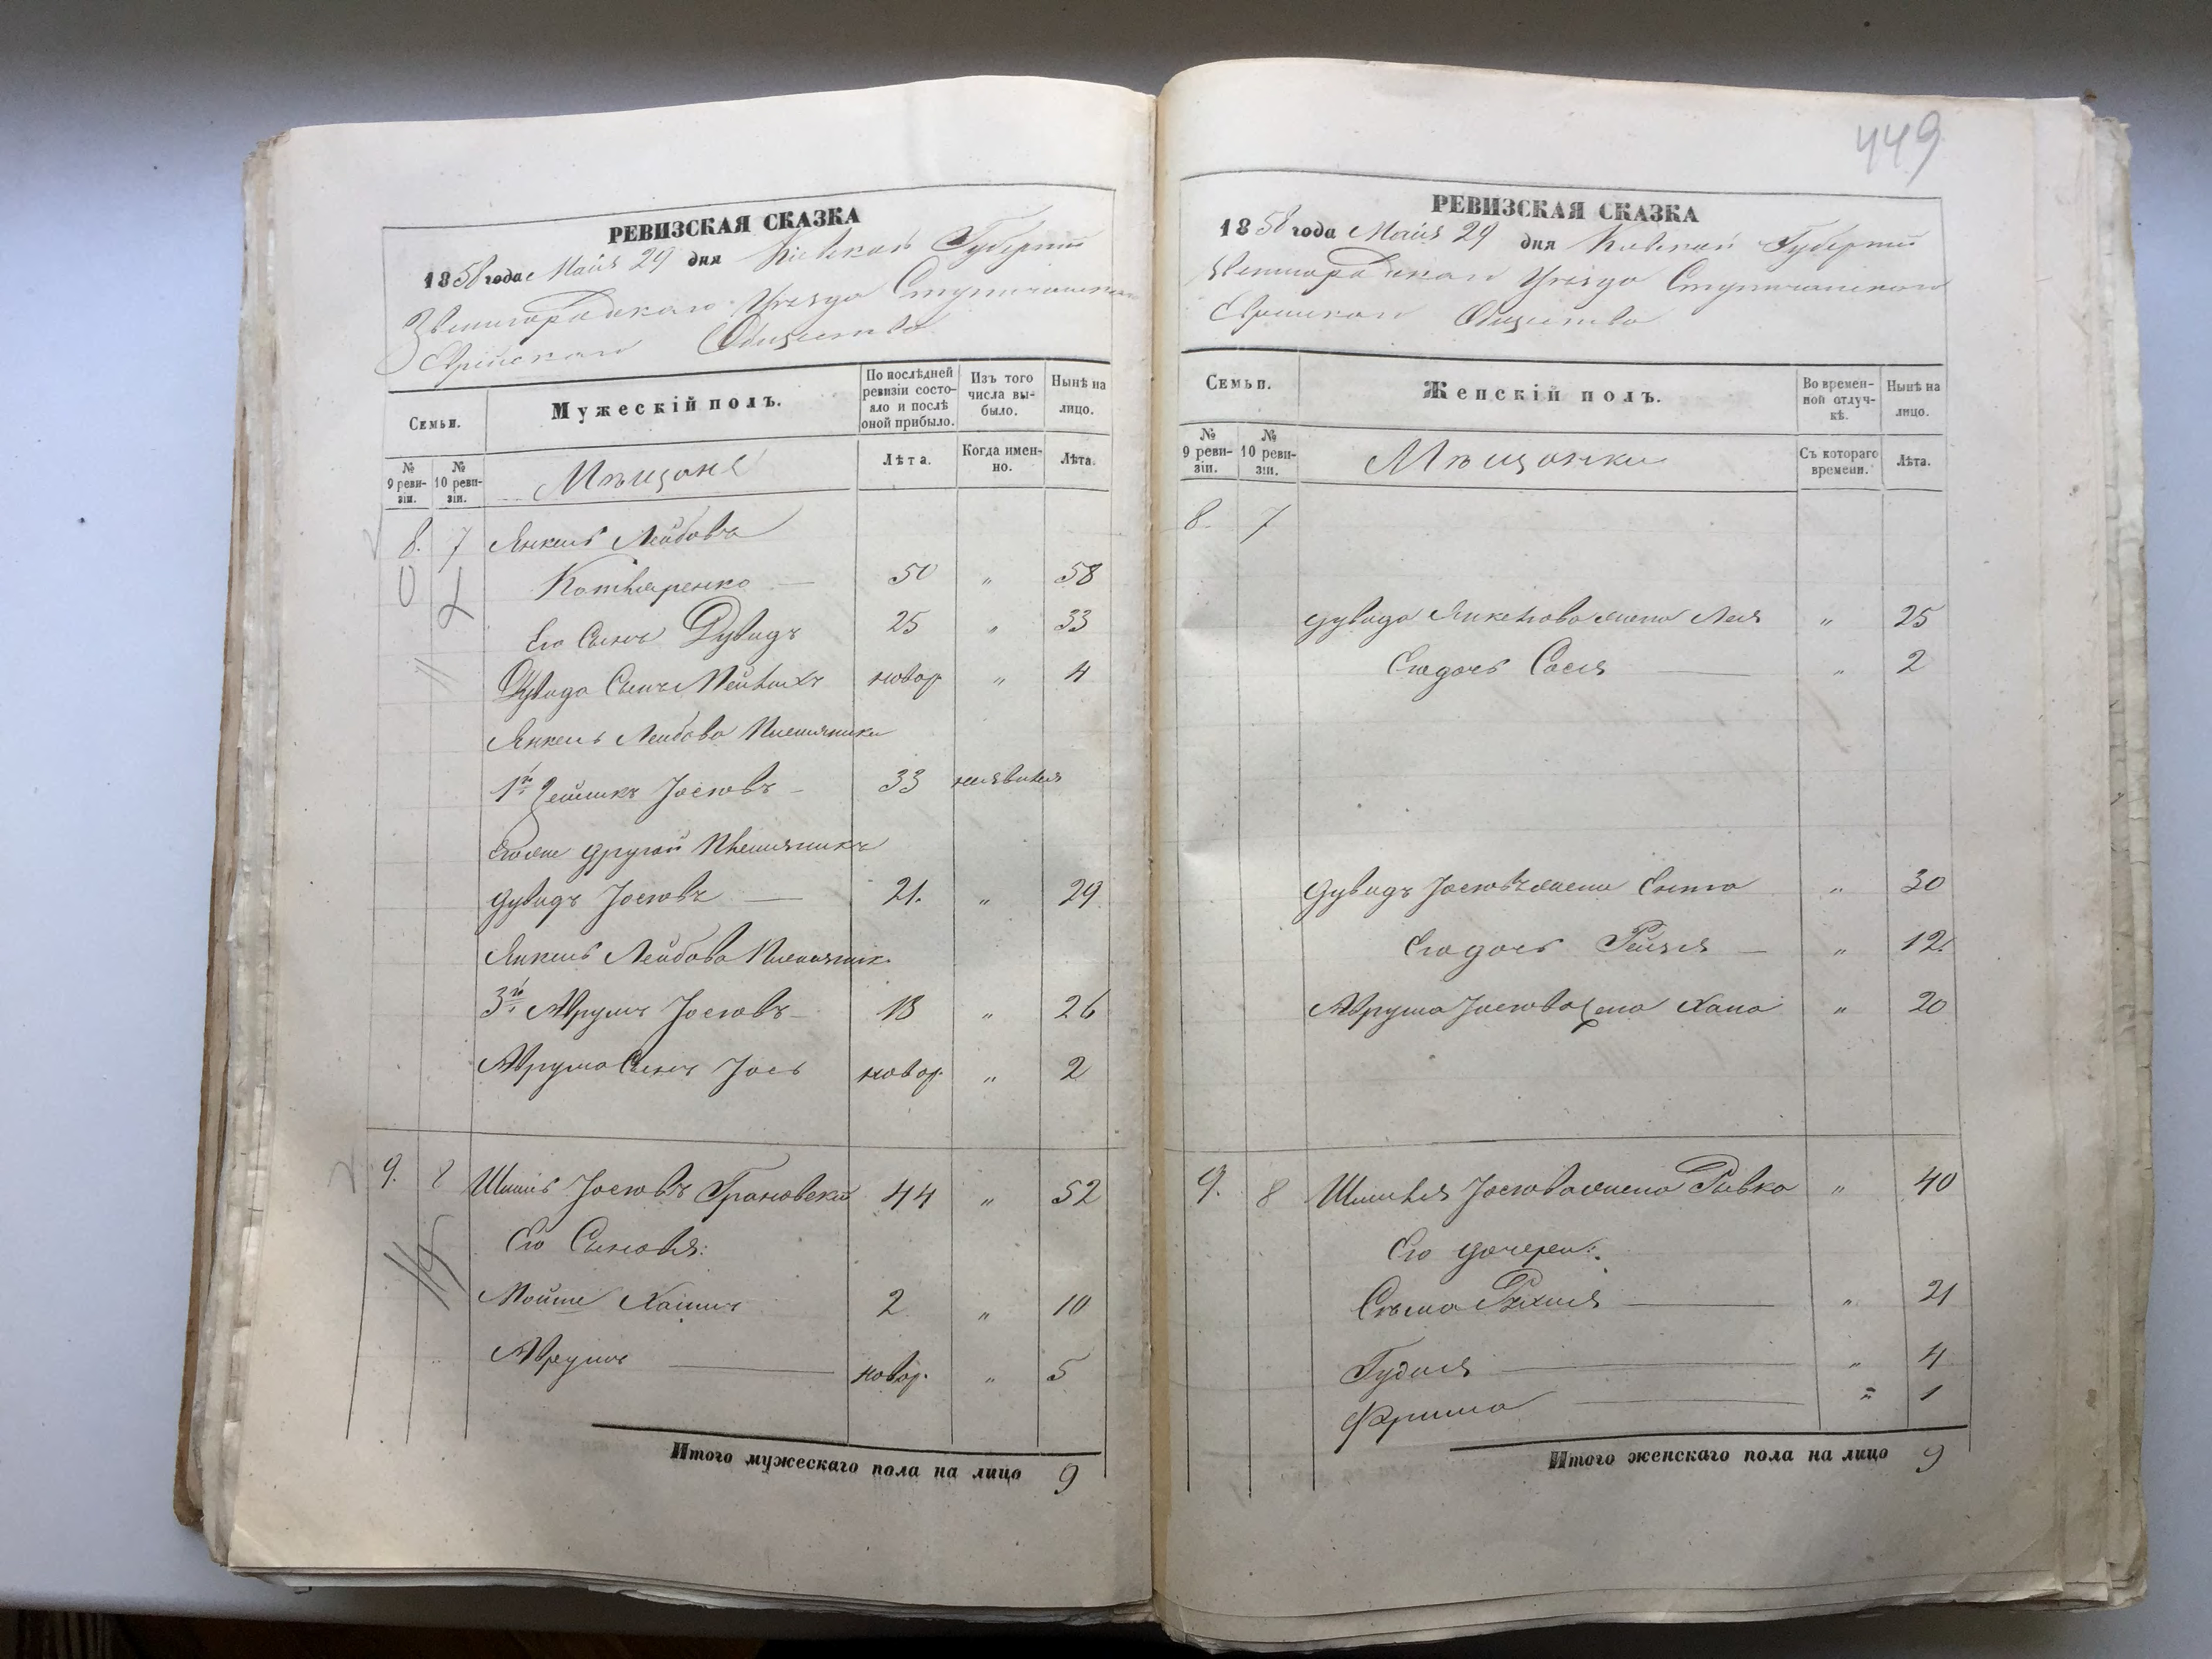 РЕВИЗСКАЯ СКАЗКА
1858 года Маія 29 дня Кіевской Губерніи
Звенигородскаго Уѣзда Ступичанскаго
Еврейскаго Общества
Семьи.
Мужескій полъ.
По послѣдней ревизіи состояло и послѣ оной прибыло.
Изъ того числа выбыло.
Нынѣ на лицо.
№ 9 ревизіи.
№ 10 ревизіи.
Мѣщане
Лѣта.
Когда именно.
Лѣта.
8. 7 Янкель Лейбовъ
Котляренко — 50 „ 58
Его Сынъ Дувидъ 25 „ 33
Дувида Сынъ Лейвихъ новор „ 4
Янкель Лейбова Племяники
1й Зейликъ Іосіовъ — 33 неявился
Его же другой Племяникъ
Дувидъ Іосіовъ — 21. „ 29
Янкель Лейбова Племяник.
3й Аврумъ Іосіовъ — 18 „ 26
Аврума Сынъ Іось новор. „ 2
9. 8 Шмиль Іосіовъ Грановскій 44 „ 52
Его Сыновья:
Мойше Хаимъ 2 „ 10
Аврумъ — новор. „ 5
Итого мужескаго пола на лицо 9
449
РЕВИЗСКАЯ СКАЗКА
1858 года Маія 29 дня Кіевской Губерніи
Звенигородскаго Уѣзда Ступичанскаго
Еврейскаго Общества
Семьи.
Женскій полъ.
Во временной отлучкѣ.
Нынѣ на лицо.
№ 9 ревизіи.
№ 10 ревизіи.
Мѣщанки
Съ котораго времени.
Лѣта.
8. 7
Дувида Янкелова жена Лея „ 25
Его дочь Сося — „ 2
Дувидъ Іосіовъ жена „ 30
Его дочь Рейзя — „ 12.
Аврума Іосіова жена Хана „ 20
9. 8 Шмиля Іосіова жена Ривка „ 40
Его дочери:
Сима Рухля — „ 21
Гудля — „ 4
Фрима — „ 1
Итого женскаго пола на лицо 9